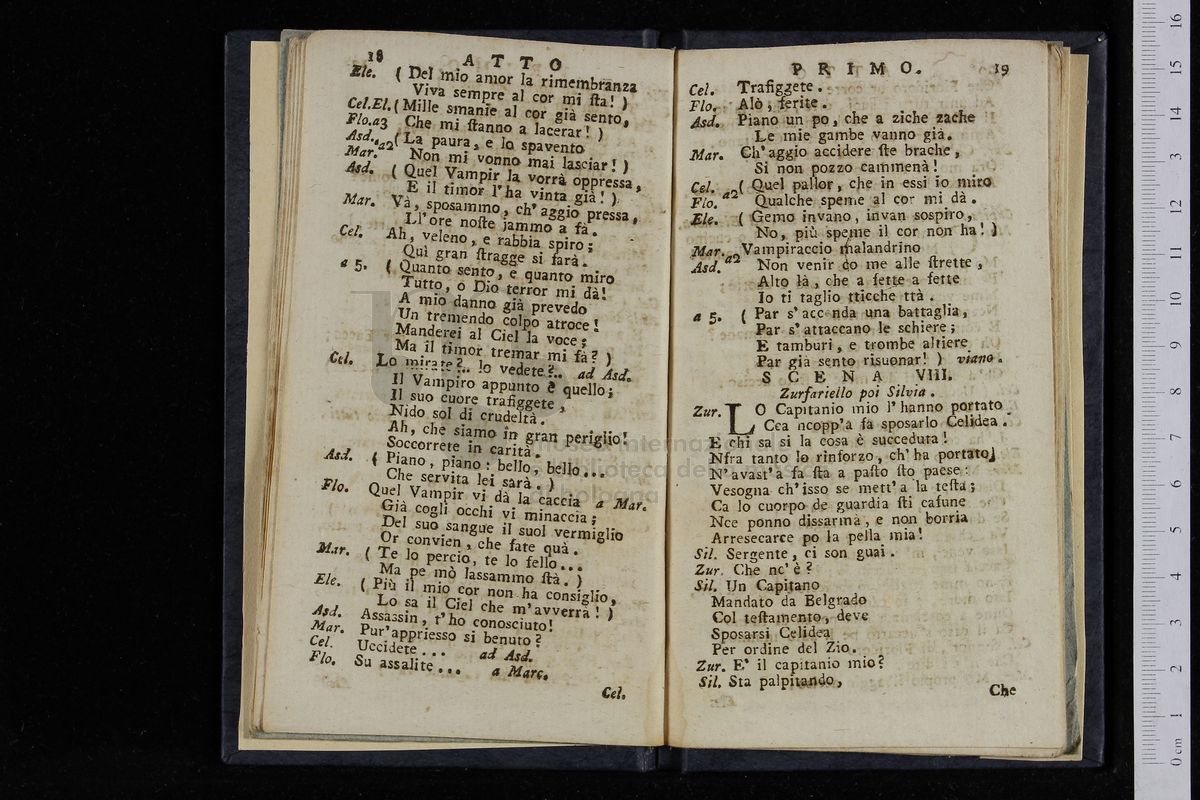 18
A T T O
Ele. ( Del mio amor la rimembranza
Viva sempre al cor mi ſta! )
Cel.El. ( Mille smanie al cor già sento,
Flo.a3 Che mi ſtanno a lacerar! )
Asd. a2 ( La paura, e lo spavento
Mar. Non mi vonno mai lasciar! )
Asd. ( Quel Vampir la vorrà oppressa,
E il timor l'ha vinta già! )
Mar. Và, sposammo, ch'aggio pressa,
Ll'ore noſte jammo a fà.
Cel. Ah, veleno, e rabbia spiro;
Quì gran ſtragge si farà.
a 5. ( Quanto sento, e quanto miro
Tutto, o Dio terror mi dà!
A mio danno già prevedo
Un tremendo colpo atroce!
Manderei al Ciel la voce;
Ma il timor tremar mi fà? )
Cel. Lo mirate?.. lo vedete?.. ad Asd.
Il Vampiro appunto è quello;
Il suo cuore trafiggete,
Nido sol di crudeltà.
Ah, che siamo in gran periglio!
Soccorrete in carità.
Asd. ( Piano, piano: bello, bello...
Che servita lei sarà. )
Flo. Quel Vampir vi dà la caccia a Mar.
Già cogli occhi vi minaccia;
Del suo sangue il suol vermiglio
Or convien, che fate quà.
Mar. ( Te lo percio, te lo fello...
Ma pe mò lassammo ſtà. )
Ele. ( Più il mio cor non ha consiglio,
Lo sa il Ciel che m'avverrà! )
Asd. Assassin, t'ho conosciuto!
Mar. Pur'appriesso si benuto?
Cel. Uccidete... ad Asd.
Flo. Su assalite... a Marc.
Cel.
P R I M O.
19
Cel. Trafiggete.
Flo. Alò, ferite.
Asd. Piano un po, che a ziche zache
Le mie gambe vanno già.
Mar. Ch'aggio accidere ſte brache,
Si non pozzo cammenà!
Cel. a2 ( Quel pallor, che in essi io miro
Flo. Qualche speme al cor mi dà.
Ele. ( Gemo invano, invan sospiro,
No, più speme il cor non ha! )
Mar. a2 Vampiraccio malandrino
Asd. Non venir co me alle ſtrette,
Alto là, che a fette a fette
Io ti taglio tticche ttà.
a 5. ( Par s'accenda una battaglia,
Par s'attaccano le schiere;
E tamburi, e trombe altiere
Par già sento risuonar! ) viano.
S C E N A VIII.
Zurfariello poi Silvia.
Zur. LO Capitanio mio l'hanno portato
Cca ncopp'a fa sposarlo Celidea.
E chi sa si la cosa è succeduta!
Nfra tanto lo rinforzo, ch'ha portato,
N'avaſt'a fa ſta a paſto ſto paese:
Vesogna ch'isso se mett'a la teſta;
Ca lo cuorpo de guardia ſti casune
Nce ponno dissarmà, e non borria
Arresecarce po la pella mia!
Sil. Sergente, ci son guai.
Zur. Che nc'è?
Sil. Un Capitano
Mandato da Belgrado
Col teſtamento, deve
Sposarsi Celidea
Per ordine del Zio.
Zur. E' il capitanio mio?
Sil. Sta palpitando,
Che